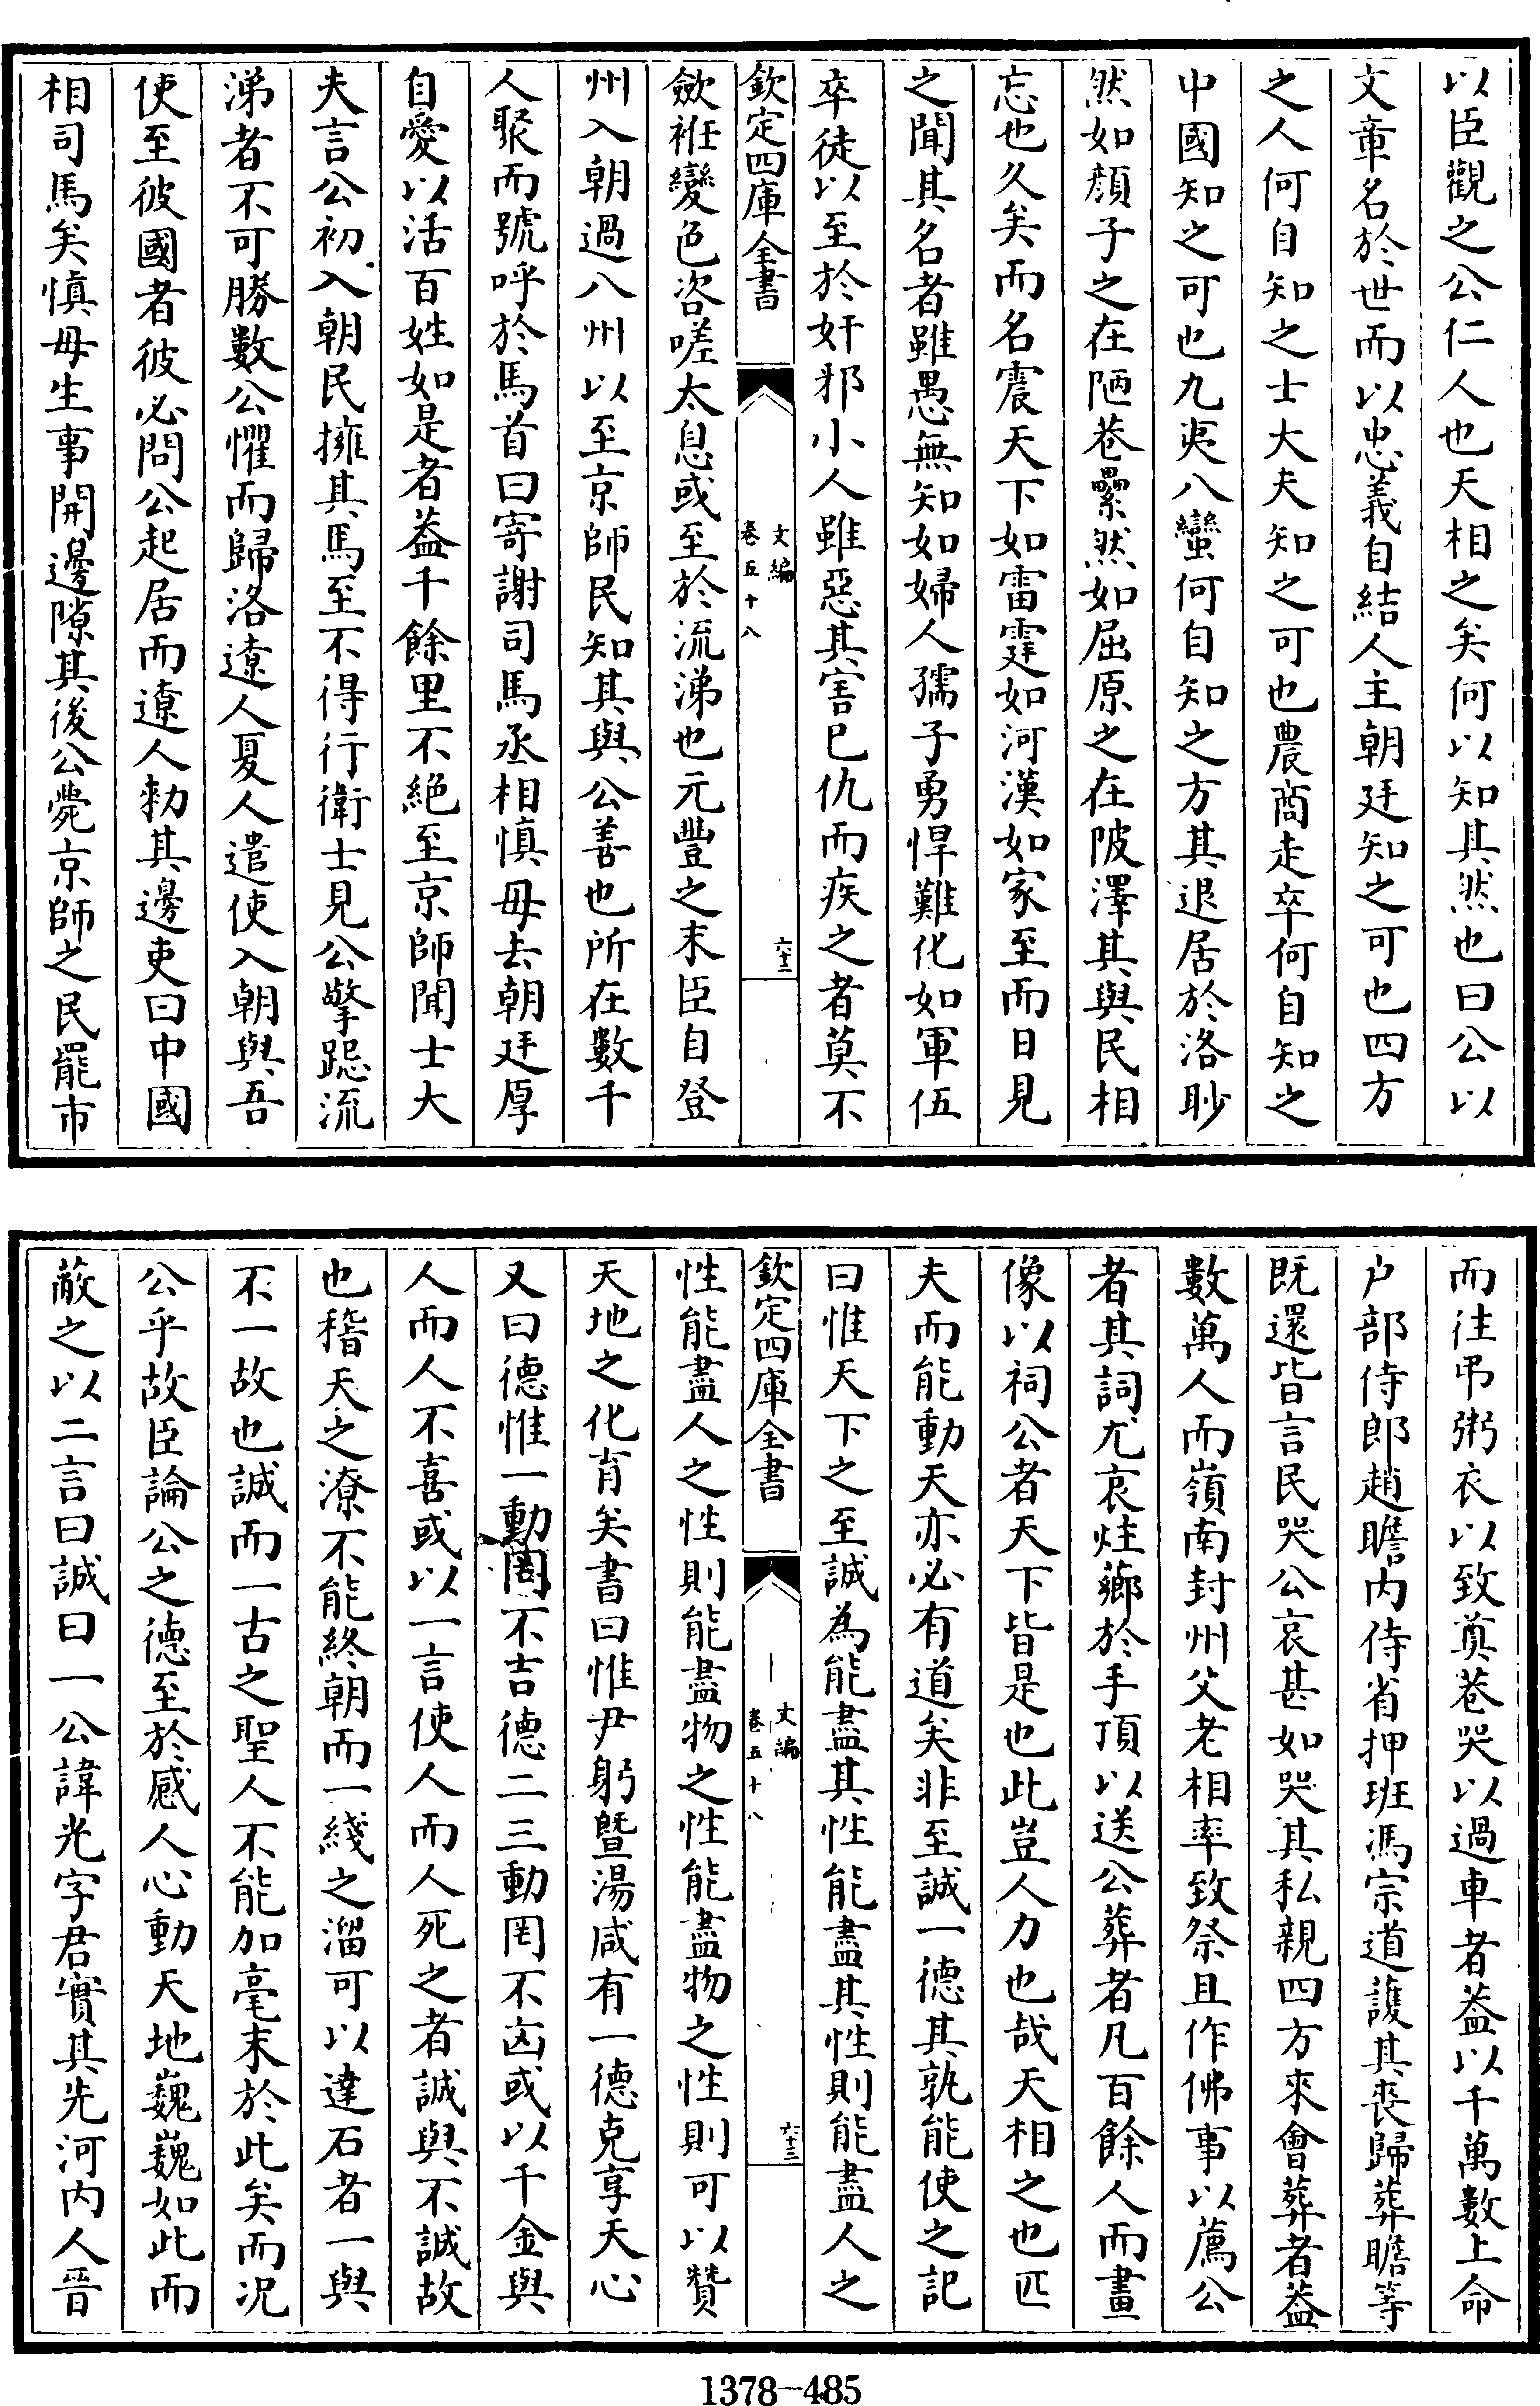 以臣觀之公仁人也天相之矣何以知其然也曰公以
文章名於世而以忠義自結人主朝廷知之可也四方
之人何自知之士大夫知之可也農商走卒何自知之
中國知之可也九夷八蠻何自知之方其退居於洛眇
然如顏子之在陋巷纍然如屈原之在陂澤其與民相
忘也久矣而名震天下如雷霆如河漢如家至而日見
之聞其名者雖愚無知如婦人孺子勇悍難化如軍伍
卒徒以至於奸邪小人雖惡其害已仇而疾之者莫不
欽定四庫全書
文編
卷五十八
六十二
歛袵變色咨嗟太息或至於流涕也元豐之末臣自登
州入朝過八州以至京師民知其與公善也所在數千
人聚而號呼於馬首曰寄謝司馬丞相慎毋去朝廷厚
自愛以活百姓如是者葢千餘里不絕至京師聞士大
夫言公初入朝民擁其馬至不得行衛士見公擎跽流
涕者不可勝數公懼而歸洛遼人夏人遣使入朝與吾
使至彼國者彼必問公起居而遼人勑其邊吏曰中國
相司馬矣慎毋生事開邊隙其後公薨京師之民罷市
而往弔粥衣以致奠巷哭以過車者葢以千萬數上命
户部侍郎趙瞻内侍省押班馮宗道護其喪歸葬瞻等
既還皆言民哭公哀甚如哭其私親四方來會葬者葢
數萬人而嶺南封州父老相率致祭且作佛事以薦公
者其詞尤哀炷薌於手頂以送公葬者凡百餘人而畫
像以祠公者天下皆是也此豈人力也哉天相之也匹
夫而能動天亦必有道矣非至誠一德其孰能使之記
曰惟天下之至誠為能盡其性能盡其性則能盡人之
欽定四庫全書
文編
卷五十八
六十三
性能盡人之性則能盡物之性能盡物之性則可以贊
天地之化育矣書曰惟尹躬曁湯咸有一德克享天心
又曰德惟一動罔不吉德二三動罔不凶或以千金與
人而人不喜或以一言使人而人死之者誠與不誠故
也稽天之潦不能終朝而一綫之溜可以達石者一與
不一故也誠而一古之聖人不能加毫末於此矣而况
公乎故臣論公之德至於感人心動天地巍巍如此而
蔽之以二言曰誠曰一公諱光字君實其先河内人晉
1378-485